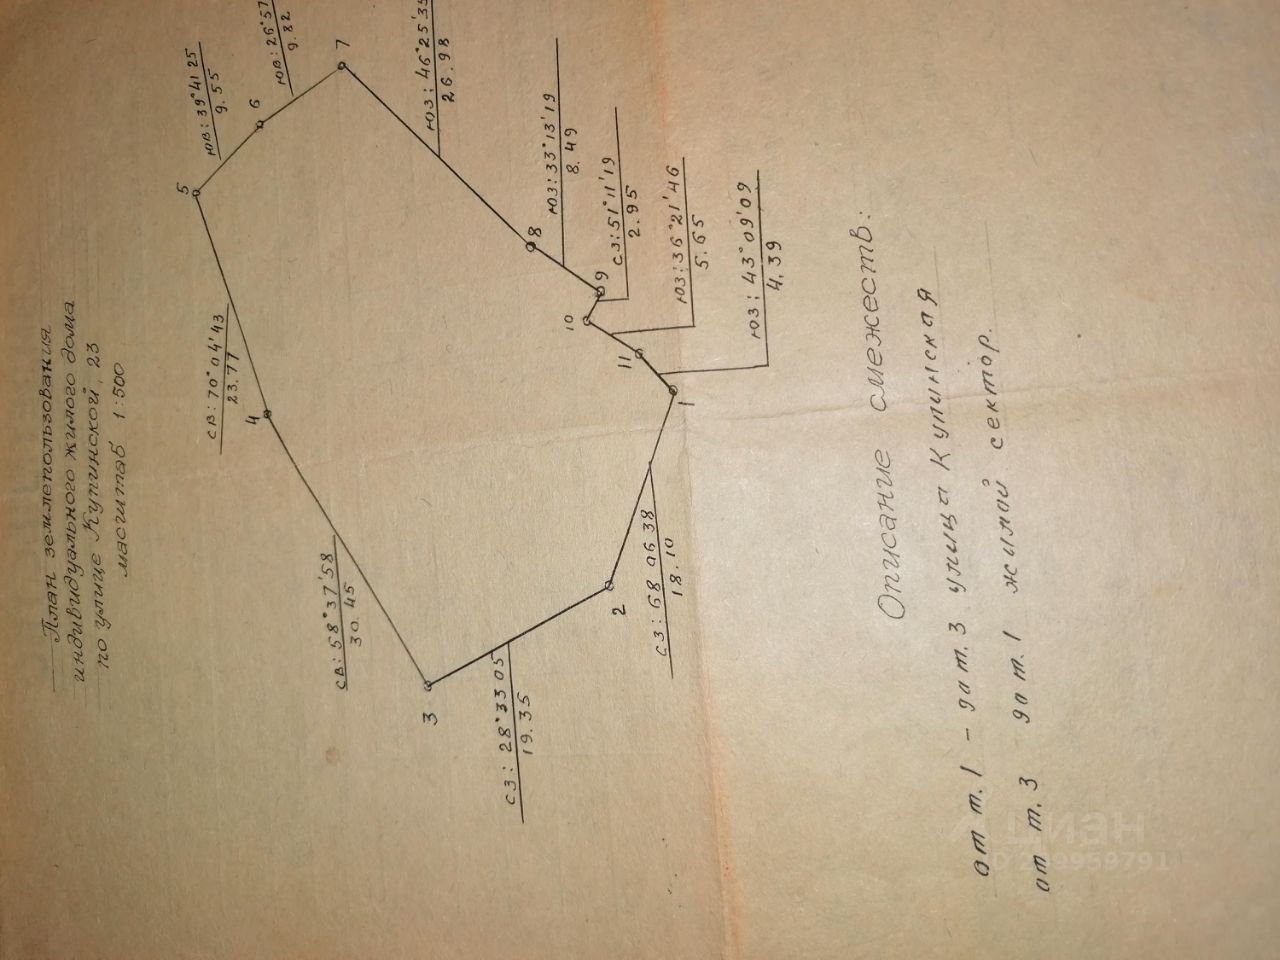 План землепользования
индивидуального жилого дома
по улице Купинской, 23
масштаб 1:500
5
ЮВ: 39°41 25
9.55
6
ЮВ: 26°57
9.82
7
ЮЗ: 46°25'35
26.98
8
ЮЗ: 33°13'19
8.49
9
СЗ: 51°11'19
2.95
10
ЮЗ: 36°21'46
5.65
11
ЮЗ: 43°09'09
4.39
1
СЗ: 68 06 38
18.10
2
СЗ: 28°33 05
19.35
3
СВ: 58°37'58
30.45
4
СВ: 70°04'43
23.77
Описание смежеств:
от т.1 - до т.3 улица Купинская
от т.3 до т.1 жилой сектор.
Циан